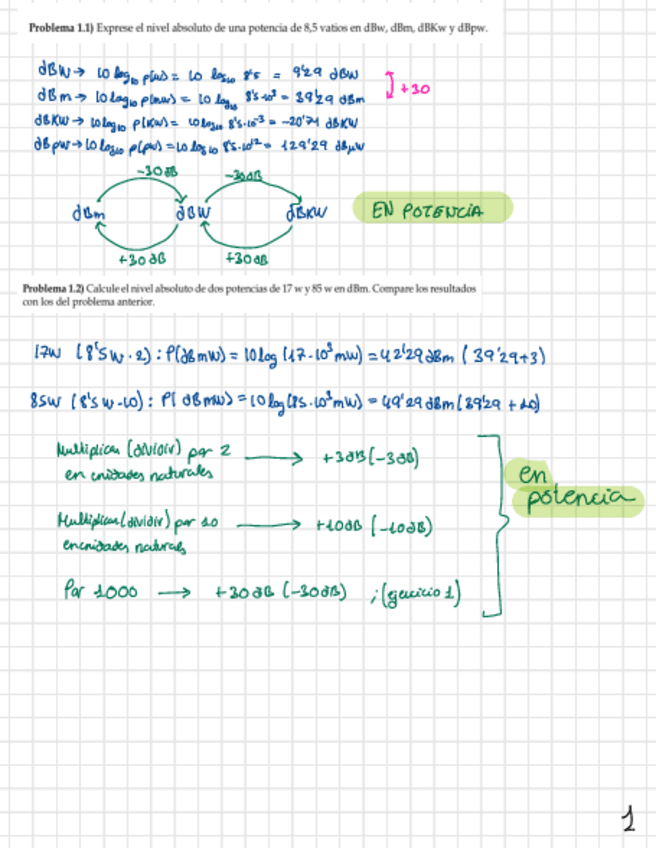 Problema 1.1) Exprese el nivel absoluto de una potencia de 8,5 vatios en dBw, dBm, dBKw y dBpw.
dBW → 10 log10 p(w) = 10 log10 8'5 = 9'29 dBW
dBm → 10 log10 p(mw) = 10 log10 8'5·10³ = 39'29 dBm
+30
dBKW → 10 log10 p(kw) = 10 log10 8'5·10⁻³ = -20'71 dBKW
dBpw → 10 log10 p(pw) = 10 log10 8'5·10¹² = 129'29 dBpW
-30dB -30dB
dBm dBW dBKW EN POTENCIA
+30dB +30dB
Problema 1.2) Calcule el nivel absoluto de dos potencias de 17 w y 85 w en dBm. Compare los resultados
con los del problema anterior.
17W (8'5W·2) : P(dBmW) = 10 log (17·10³ mW) = 42'29 dBm (39'29+3)
85W (8'5W·10) : P(dBmW) = 10 log (85·10³ mW) = 49'29 dBm (39'29 + 10)
Multiplicar (dividir) por 2 → +3dB (-3dB)
en unidades naturales
en
potencia
Multiplicar (dividir) por 10 → +10dB (-10dB)
en unidades naturales
Por 1000 → +30dB (-30dB) ; (ejercicio 1)
1